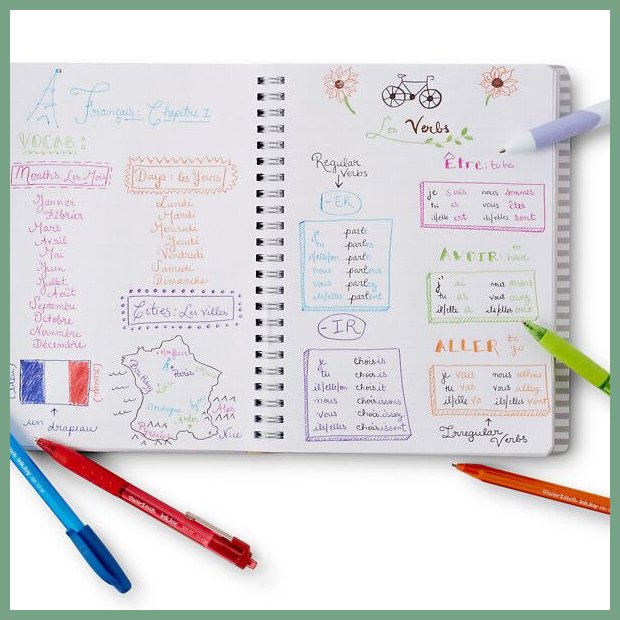 Français: Chapitre 1
VOCAB:
Months: Les Mois
Janvier
Février
Mars
Avril
Mai
Juin
Juillet
Août
Septembre
Octobre
Novembre
Décembre
un drapeau
Days: les Jours
Lundi
Mardi
Mercredi
Jeudi
Vendredi
Samedi
Dimanche
Cities: Les Villes
Paris
Alps
Nice
Pyrénées
Les Verbs
Regular
Verbs
-ER
je parle
tu parles
il/elle/on parle
nous parlons
vous parlez
ils/elles parlent
-IR
je choisis
tu choisis
il/elle/on choisit
nous choisissons
vous choisissez
ils/elles choisissent
Être: to be
je suis nous sommes
tu es vous êtes
il/elle est ils/elles sont
AVOIR: to have
j' ai nous avons
tu as vous avez
il/elle a ils/elles ont
ALLER to go
je vais nous allons
tu vas vous allez
il/elle va ils/elles vont
Irregular
Verbs
InkJoy
Paper Mate InkJoy
Paper Mate InkJoy